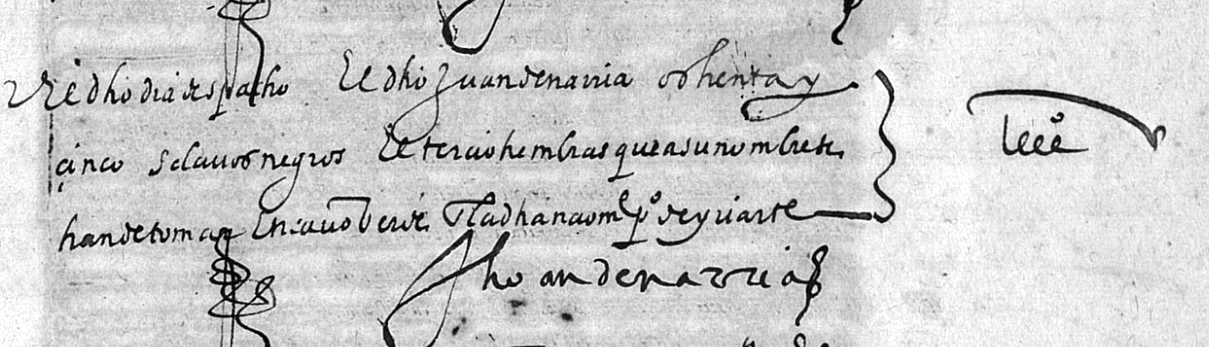 Este dho dia despacho El dho Juan de narria ochenta y
cinco sclauos negros El tercio hembras que a su nombre se
han de tomar En cauo Verde la dha nao me po de yriarte
Jhoan de narria